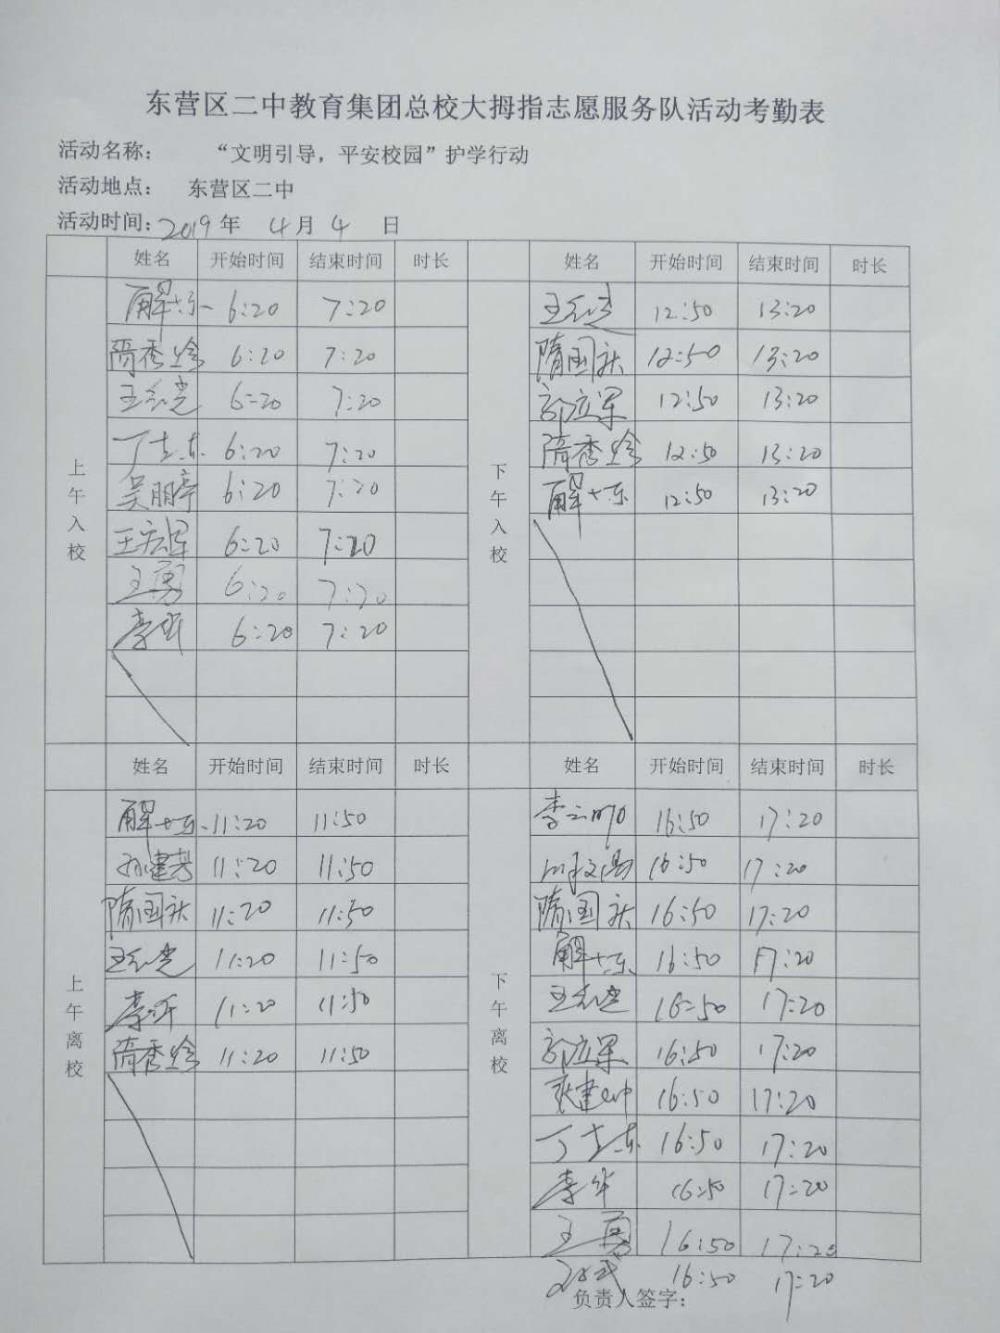 东营区二中教育集团总校大拇指志愿服务队活动考勤表
活动名称： “文明引导，平安校园”护学行动
活动地点： 东营区二中
活动时间：2019年 4月 4 日
姓名 开始时间 结束时间 时长 姓名 开始时间 结束时间 时长
上午入校
解 6:20 7:20
隋秀 6:20 7:20
王志 6:20 7:20
丁志东 6:20 7:20
吴丽亭 6:20 7:20
王宏军 6:20 7:20
王勇 6:20 7:20
李华 6:20 7:20
下午入校
王志 12:50 13:20
隋国庆 12:50 13:20
郭立军 12:50 13:20
隋秀 12:50 13:20
解 12:50 13:20
姓名 开始时间 结束时间 时长 姓名 开始时间 结束时间 时长
上午离校
解 11:20 11:50
孙建 11:20 11:50
隋国庆 11:20 11:50
王志 11:20 11:50
李 11:20 11:50
隋秀 11:20 11:50
下午离校
李云 16:50 17:20
16:50 17:20
隋国庆 16:50 17:20
解 16:50 17:20
王志 16:50 17:20
郭立军 16:50 17:20
张建 16:50 17:20
丁志东 16:50 17:20
李华 16:50 17:20
王勇 16:50 17:20
16:50 17:20
负责人签字：